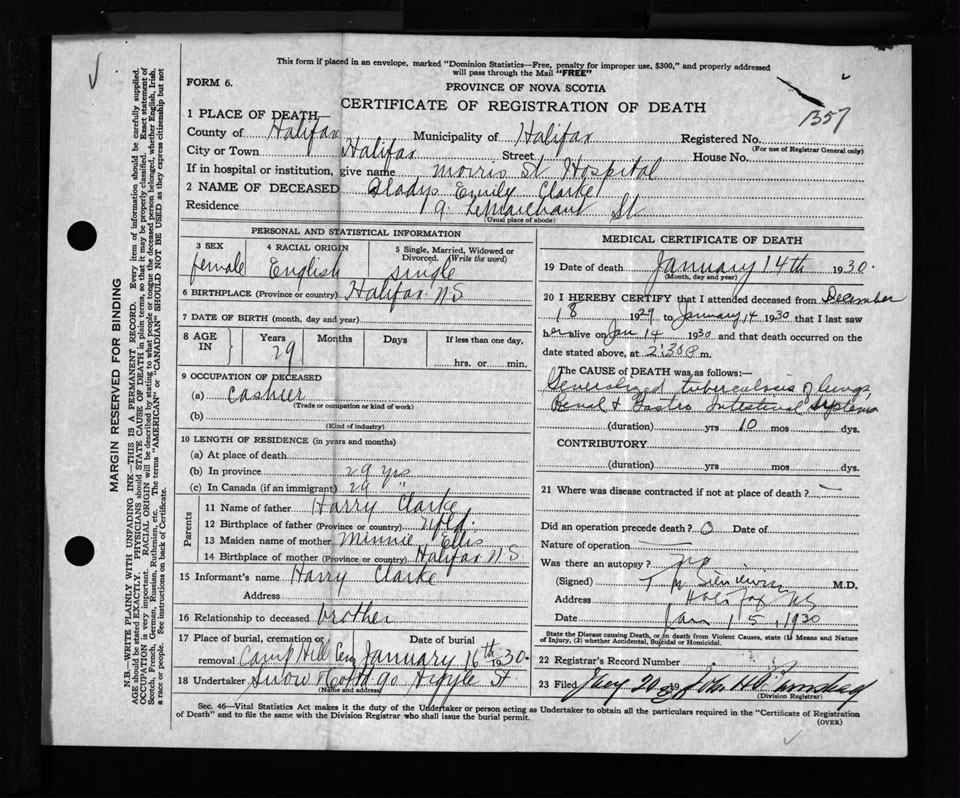 This form if placed in an envelope, marked "Dominion Statistics—Free, penalty for improper use, $300," and properly addressed
will pass through the Mail "FREE"
FORM 6.
PROVINCE OF NOVA SCOTIA
CERTIFICATE OF REGISTRATION OF DEATH
1357
1 PLACE OF DEATH—
County of Halifax Municipality of Halifax Registered No.
(For use of Registrar General only)
City or Town Halifax Street House No.
If in hospital or institution, give name Morris St. Hospital
2 NAME OF DECEASED Gladys Emily Clarke
Residence 19 LeMarchant St
(Usual place of abode)
PERSONAL AND STATISTICAL INFORMATION
3 SEX 4 RACIAL ORIGIN 5 Single, Married, Widowed or Divorced. (Write the word)
female English single
6 BIRTHPLACE (Province or country) Halifax NS
7 DATE OF BIRTH (month, day and year)
8 AGE IN Years Months Days If less than one day,
29 hrs. or min.
9 OCCUPATION OF DECEASED
(a) Cashier
(Trade or occupation or kind of work)
(b)
(Kind of industry)
10 LENGTH OF RESIDENCE (in years and months)
(a) At place of death
(b) In province 29 yrs
(c) In Canada (if an immigrant) 29 "
Parents
11 Name of father Harry Clarke
12 Birthplace of father (Province or country) Nfld.
13 Maiden name of mother Minnie Ellis
14 Birthplace of mother (Province or country) Halifax N.S.
15 Informant's name Harry Clarke
Address
16 Relationship to deceased brother
17 Place of burial, cremation or removal Camp Hill Cem Date of burial January 16th 1930.
18 Undertaker Snow & Co Ltd 90 Argyle St
(Name and address)
MEDICAL CERTIFICATE OF DEATH
19 Date of death January 14th 1930.
(Month, day and year)
20 I HEREBY CERTIFY that I attended deceased from December
18 1929 to January 14 1930 that I last saw
her alive on Jan 14 1930 and that death occurred on the
date stated above, at 2:30 P m.
The CAUSE OF DEATH was as follows:—
Generalized tuberculosis of lungs,
Renal & Gastro Intestinal systems
(duration) yrs 10 mos dys.
CONTRIBUTORY
(duration) yrs mos dys.
21 Where was disease contracted if not at place of death?
Did an operation precede death? O Date of
Nature of operation
Was there an autopsy? No
(Signed) M.D.
Address Halifax NS
Jan 15, 1930
State the Disease causing Death, or in death from Violent Causes, state (1) Means and Nature of Injury, (2) whether Accidental, Suicidal or Homicidal.
22 Registrar's Record Number
23 Filed 20
(Division Registrar)
Sec. 46—Vital Statistics Act makes it the duty of the Undertaker or person acting as Undertaker to obtain all the particulars required in the "Certificate of Registration
of Death" and to file the same with the Division Registrar who shall issue the burial permit.
(OVER)
MARGIN RESERVED FOR BINDING
N.B.—WRITE PLAINLY WITH UNFADING INK—THIS IS A PERMANENT RECORD. Every item of information should be carefully supplied.
AGE should be stated EXACTLY. PHYSICIANS should STATE CAUSE OF DEATH in plain terms, so that it may be properly classified. Exact statement of
OCCUPATION is very important. RACIAL ORIGIN will be described by stating to what people or tongue the deceased person belonged, whether English, Irish,
Scotch, French, German, Russian, Ruthenian, etc. The terms "AMERICAN" or "CANADIAN" SHOULD NOT BE USED as they express citizenship but not
a race or people. See instructions on back of Certificate.